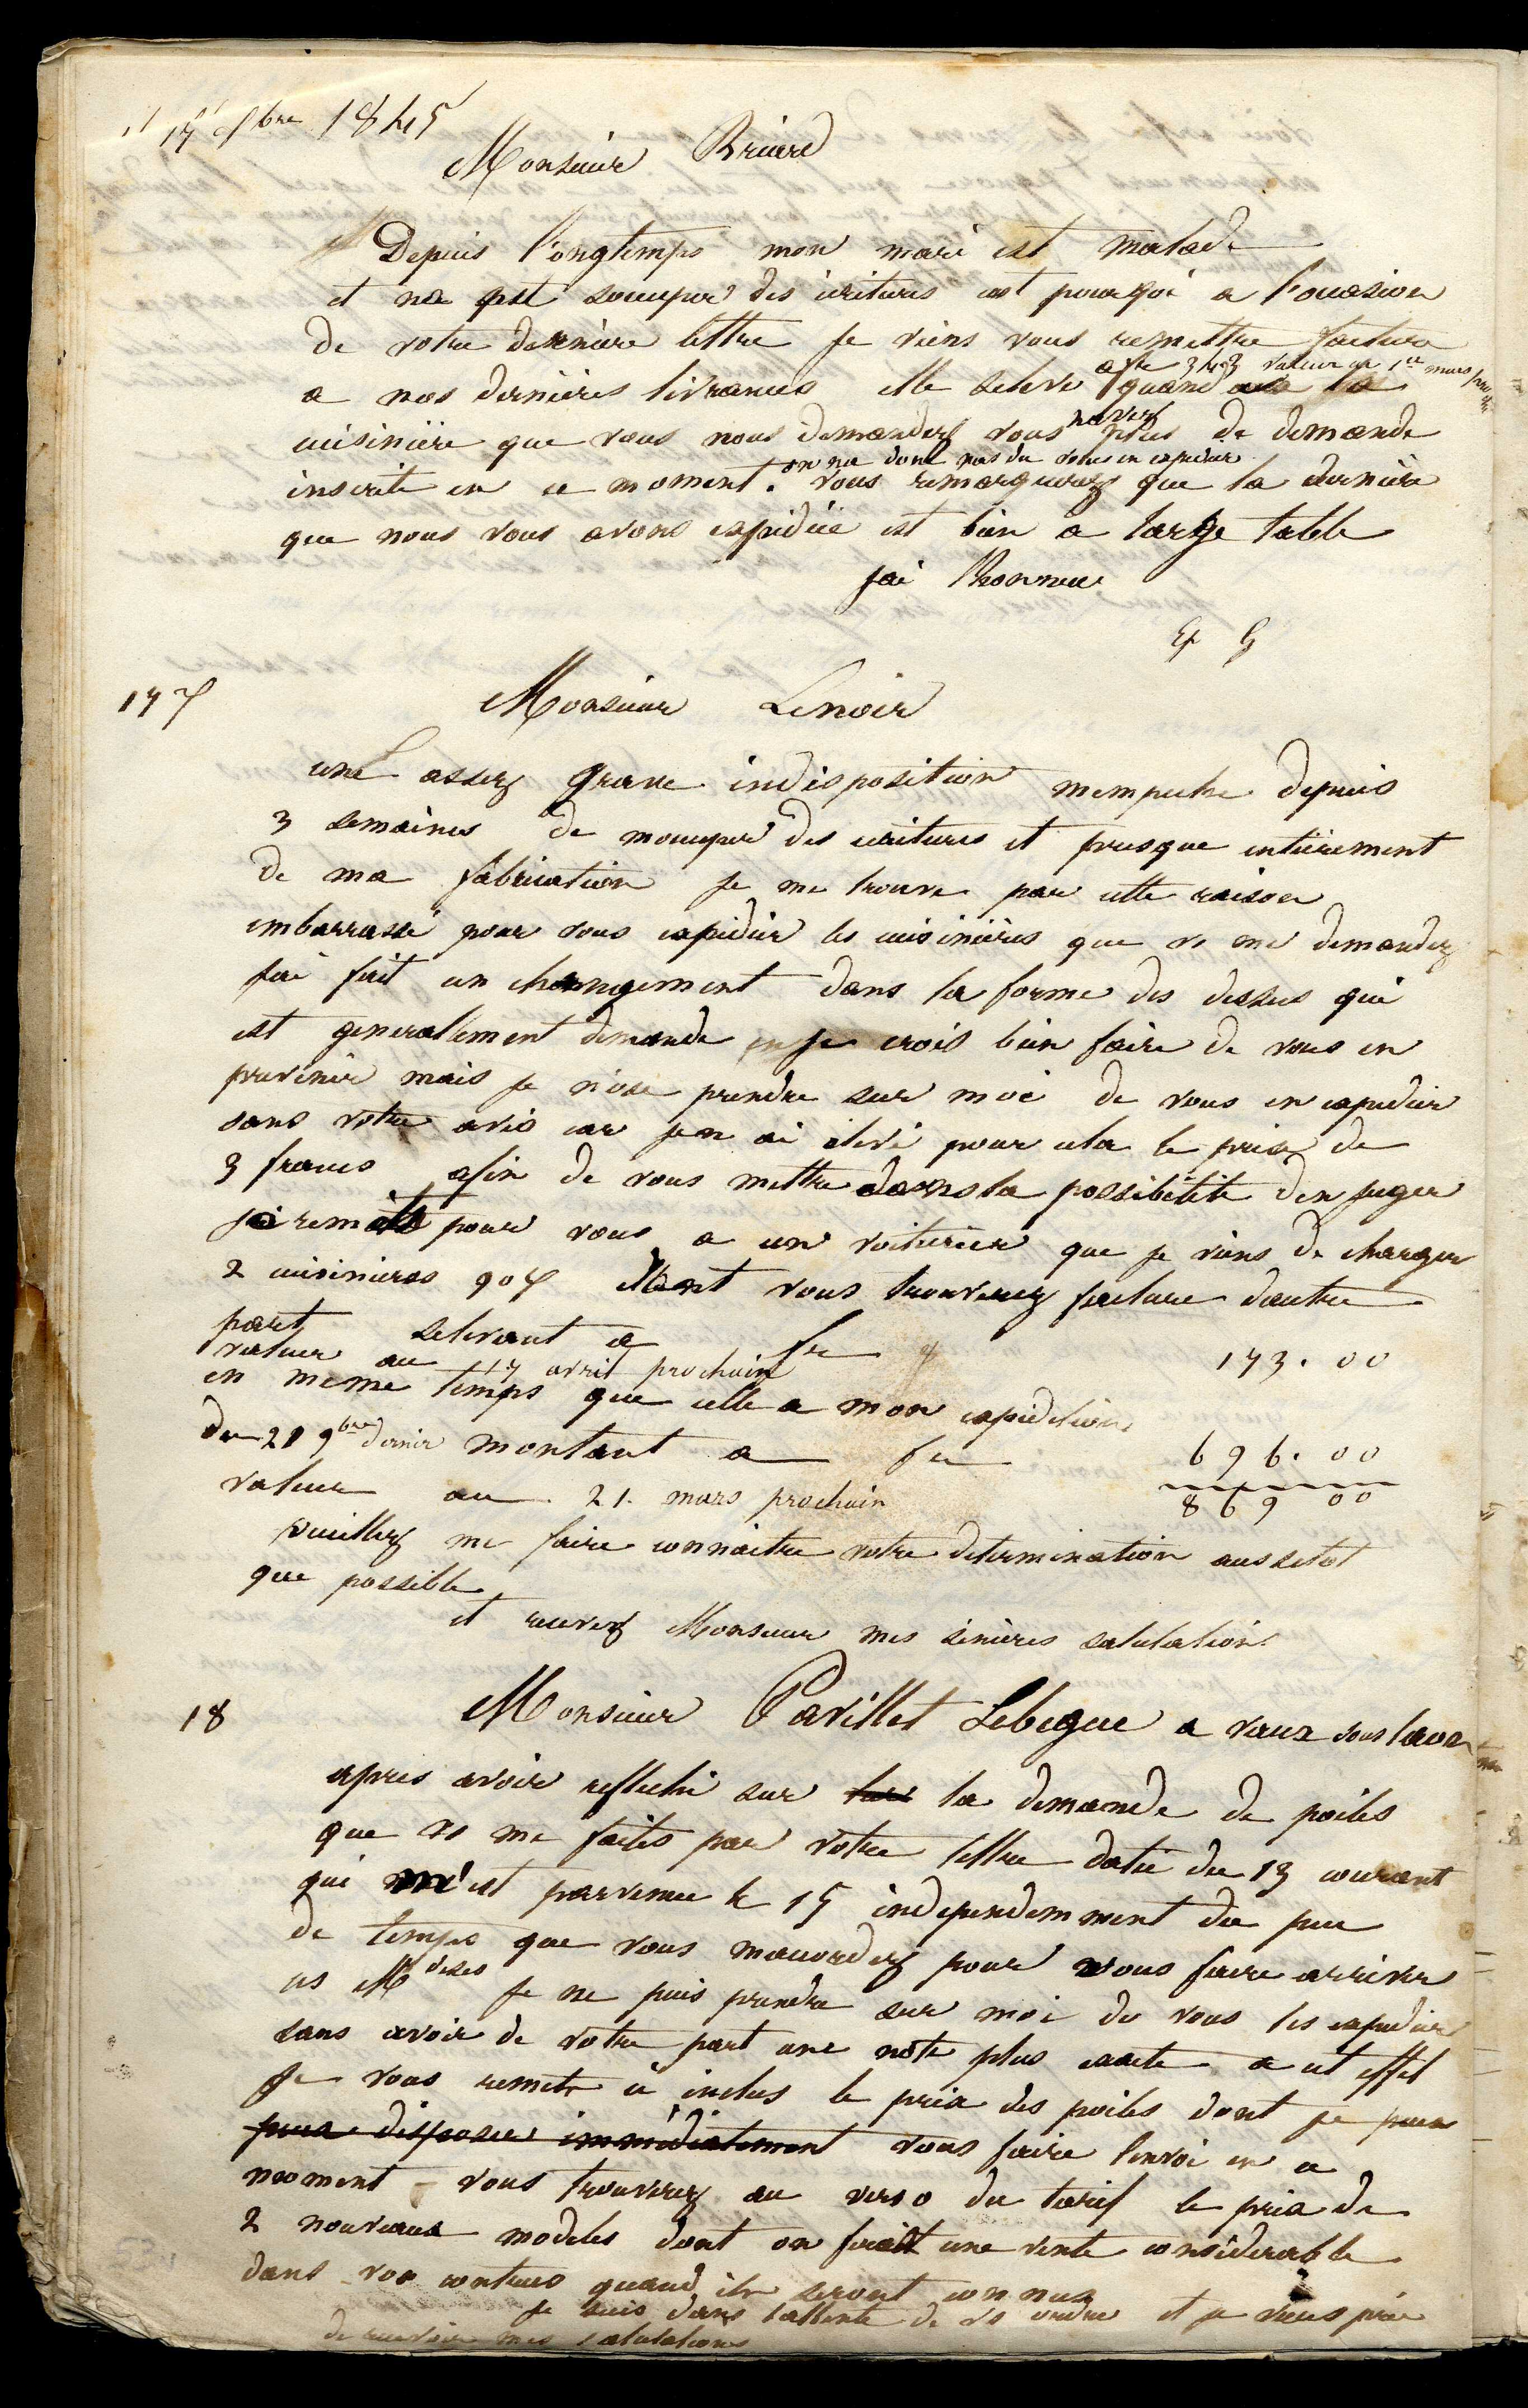 17 bre 1845
Monsieur Briard
Depuis longtemps mon mari est malade
et ne pet soccuper des ecritures cest pourqoi a l'occasion
de votre dernière lettre je viens vous remettre facture
a nos dernières livrances elle seleve a fr 343 valeur au 1er mars
quand a la
cuisinière que vous nous demandez vous navez plus de demande
inscrite en ce moment. on na donc pas du vous en expedier vous remarquerez que la dernière
que nous vous avons expediée est bien a large table
jai lhonneur
G
17 Monsieur Lenoir
une assez grave indisposition mempeche depuis
3 semaines de moccuper des ecritures et presque entièrement
de ma fabrication je me trouve par cette raison
embarrassé pour vous expedier les cuisinières que vs me demandez
jai fait un changement dans la forme des dessus qui
est generallement demande je crois bien faire de vous en
prevenir mais je n'ose prendre sur moi de vous en expedier
sans votre avis car jen ai elevé pour cela le prix de
3 francs afin de vous mettre dans la possibilité den juger
jai remis pour vous a un voiturier que je viens de charger
2 cuisinieres dont vous trouverez facture dautre
part selevant a fr 173.00
valeur au 17 avril prochain
en meme temps que celle a mon expedition
du 21 9bre dernier montant a fr 696.00
valeur au 21 mars prochain 869 00
veuillez me faire connaitre votre determination aussitot
que possible
et recevez Monsieur mes sinières salutation
18 Monsieur Pavillet Lebegue a vaux sous laon
apres avoir reflechi sur la demande de poiles
que vs me faites par votre lettre datée du 13 courant
qui m'est parvenue le 15 independemment du peu
de temps que vous maccordez pour vous faire arriver
ces Mdises je ne puis prendre sur moi de vous les expedier
sans avoir de votre part une note plus exacte a cet effet
Je vous remets ci inclus le prix des poiles dont je peux
peux disposer immédiatement vous faire lenvoi en ce
moment vous trouverez au verso du tarif le prix de
2 nouveaux modeles dont on ferait une vente considerable
dans vos contrees quand ils seront connus
je suis dans lattente de vs ordres et je vous prie
de recevoir mes salutations